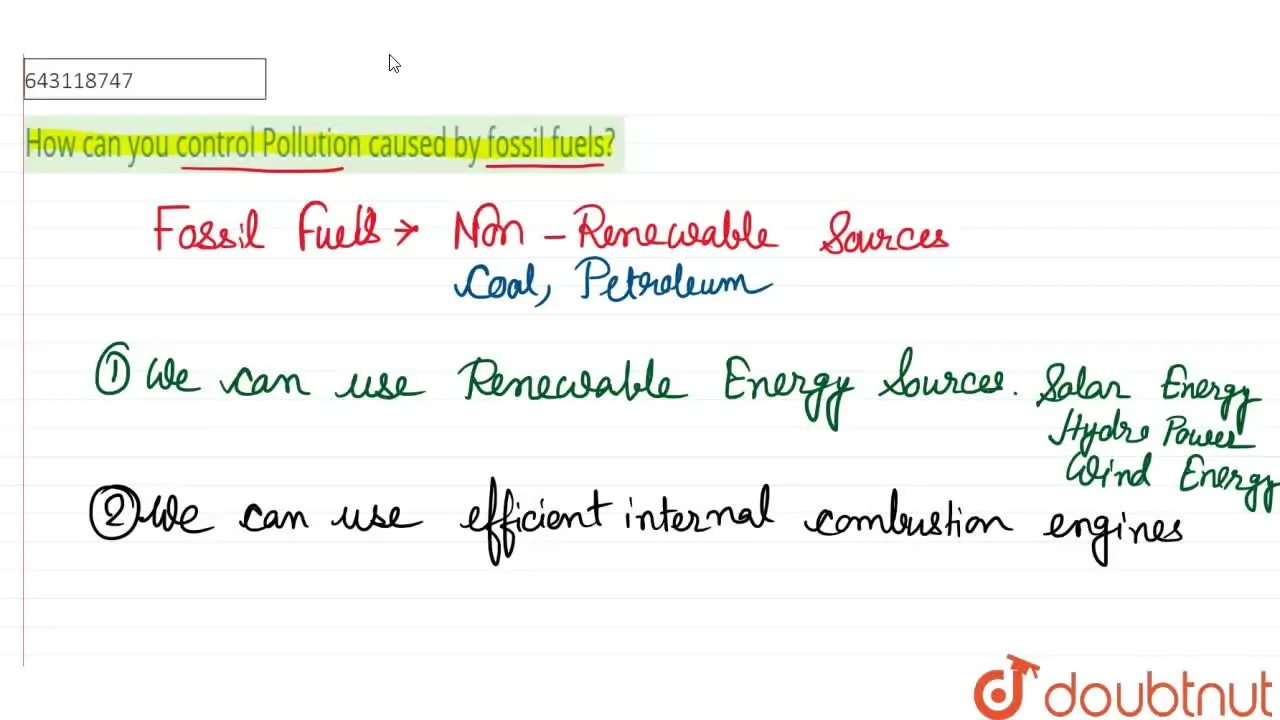 643118747
How can you control Pollution caused by fossil fuels?
Fossil Fuels → Non - Renewable Sources
Coal, Petroleum
① We can use Renewable Energy Sources. Solar Energy
Hydro Power
Wind Energy
② We can use efficient internal combustion engines
doubtnut